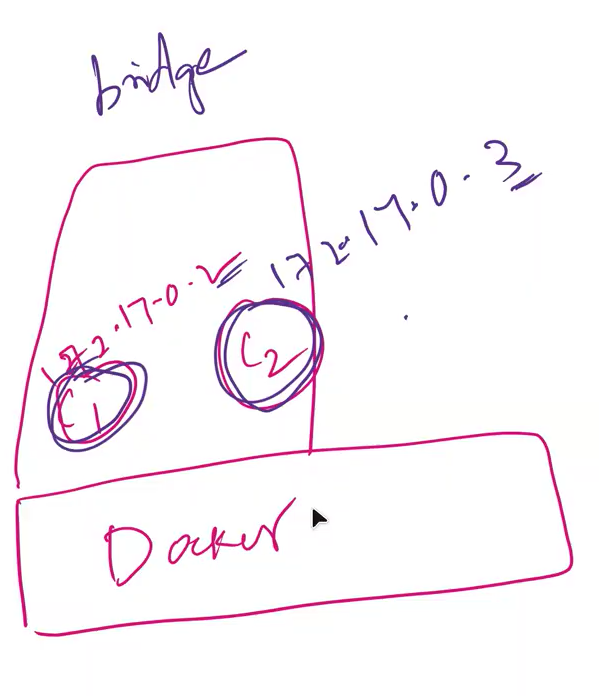 bridge
172.17.0.3
172.17.0.2
C2
C1
Docker